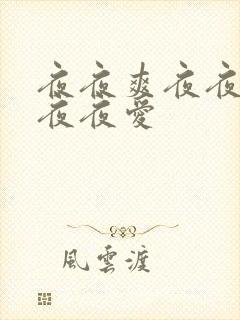 夜夜爽夜夜
夜夜愛
風雲渡